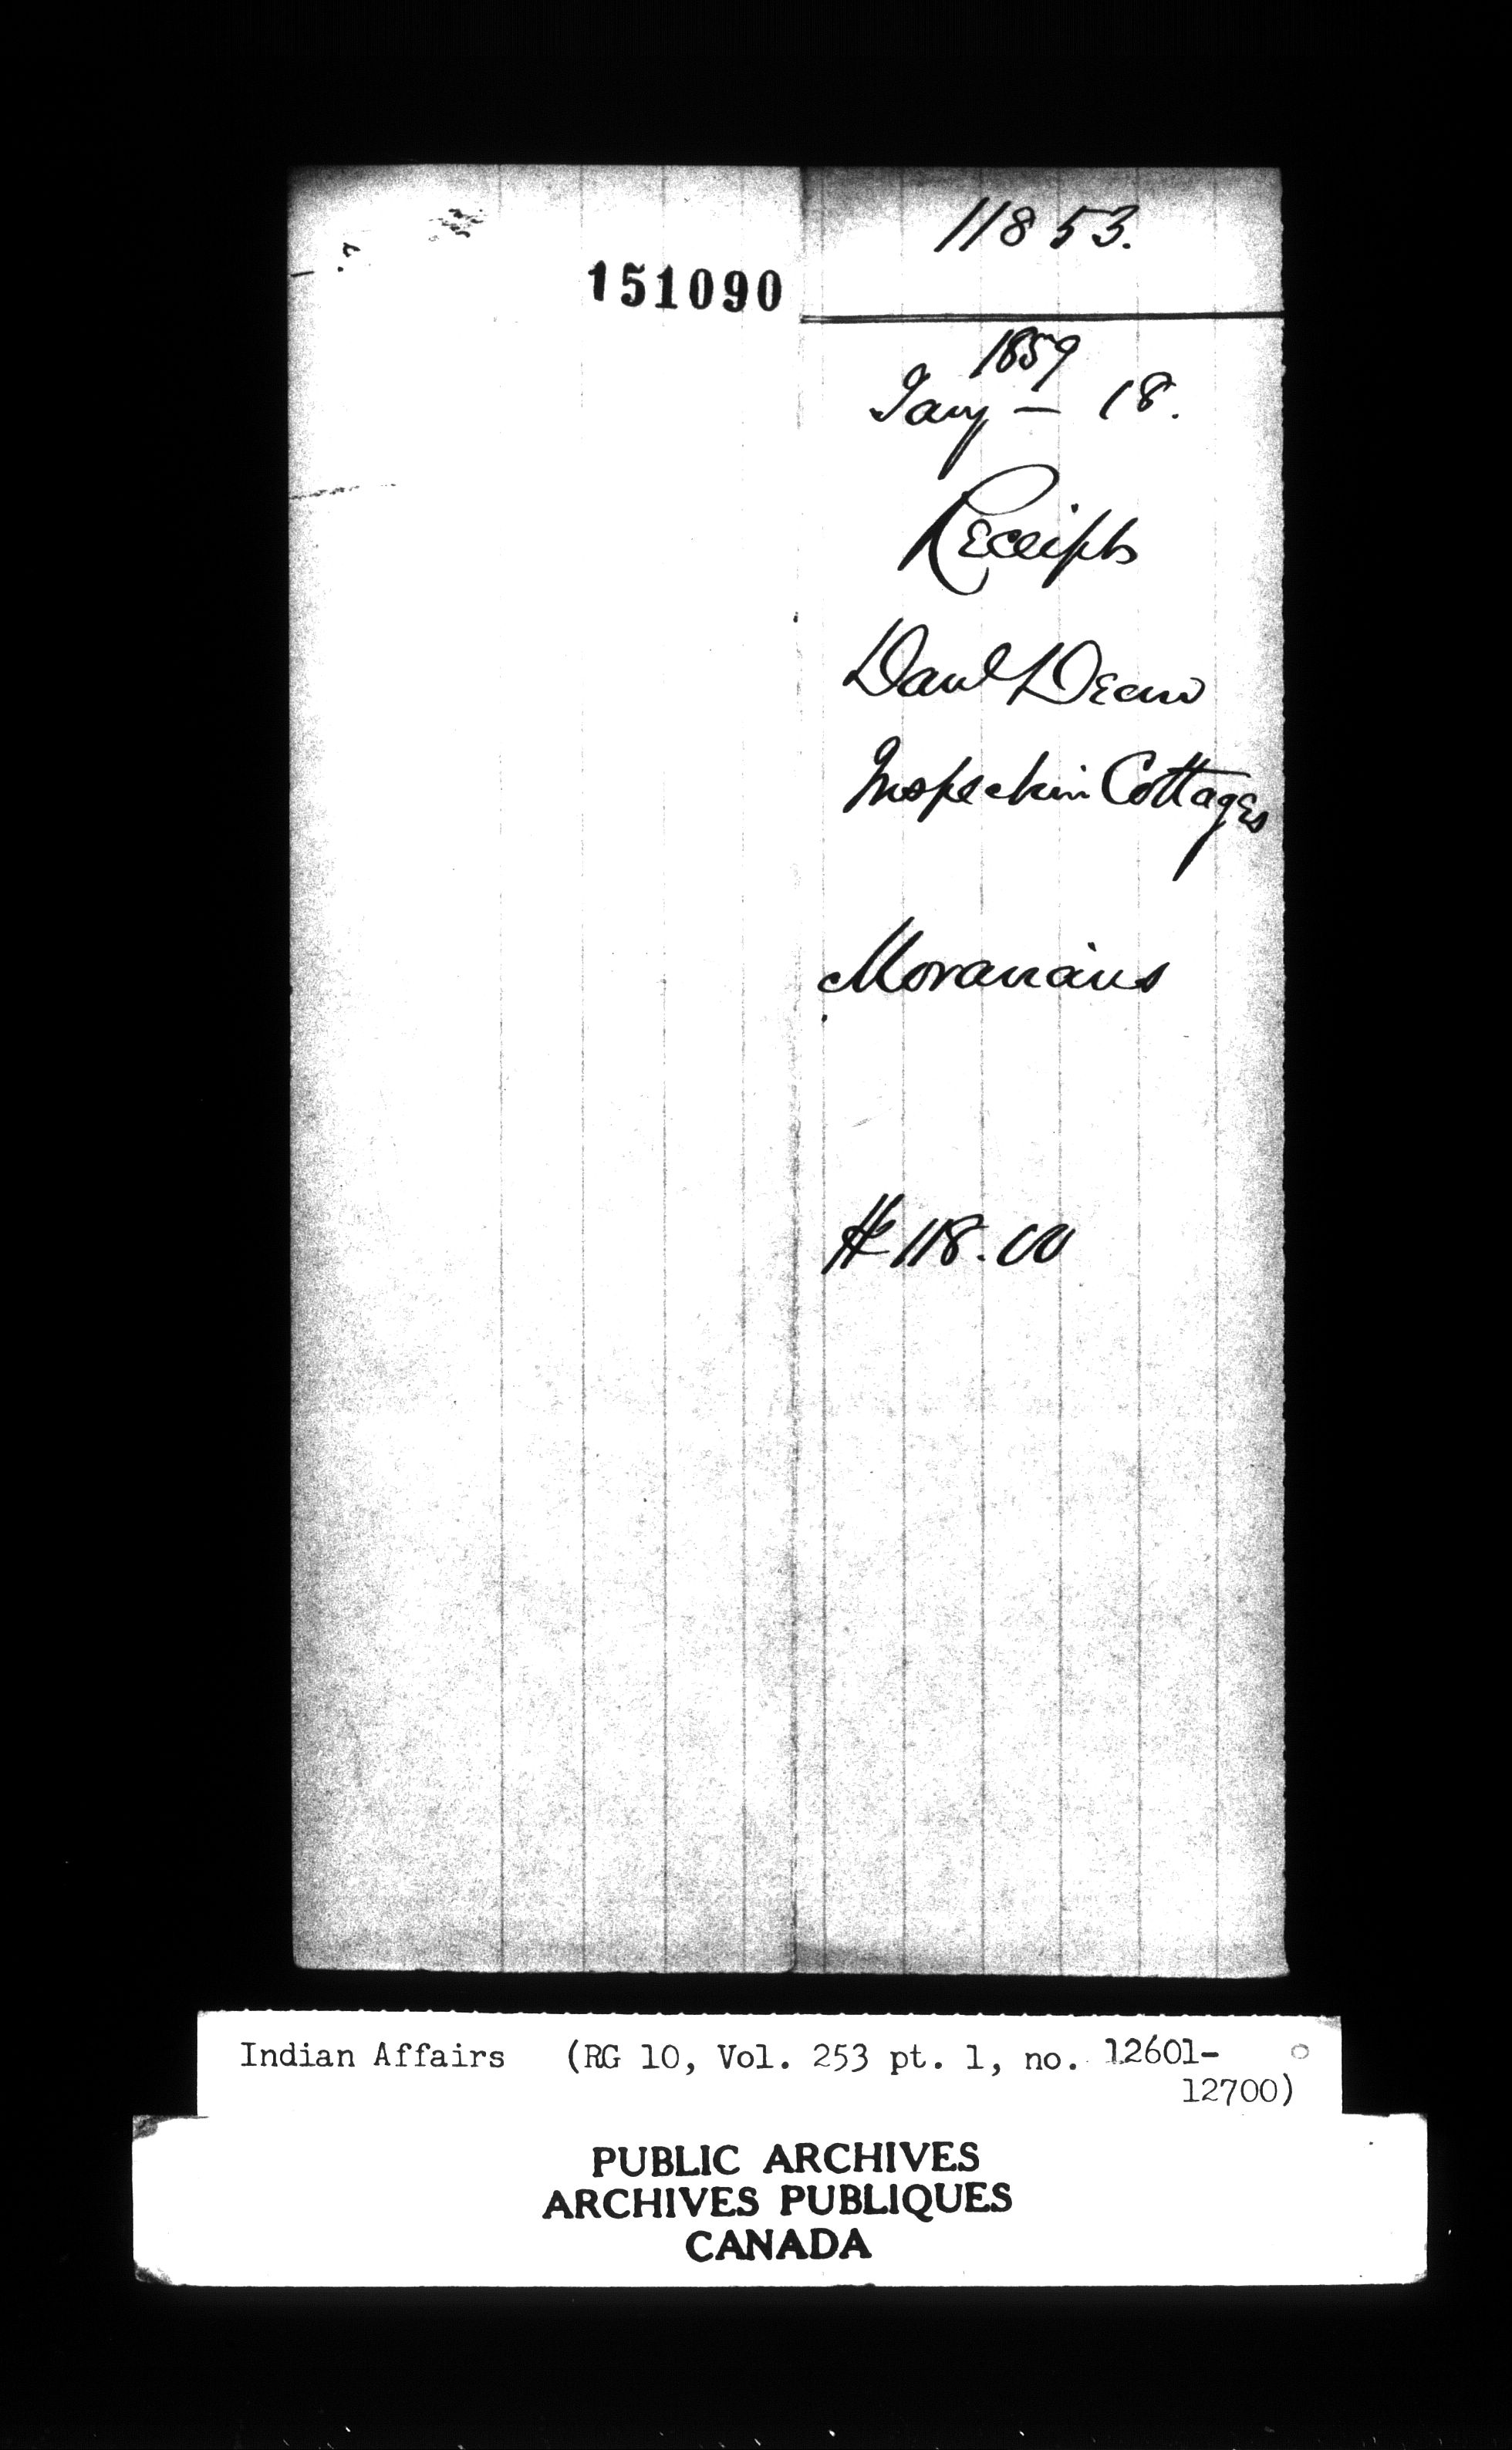 11853.
151090
1859
Jany — 18.
Receipts
Danl
Inspection Cottages
Moravians
$118.00
Indian Affairs (RG 10, Vol. 253 pt. 1, no. 12601-
12700)
PUBLIC ARCHIVES
ARCHIVES PUBLIQUES
CANADA